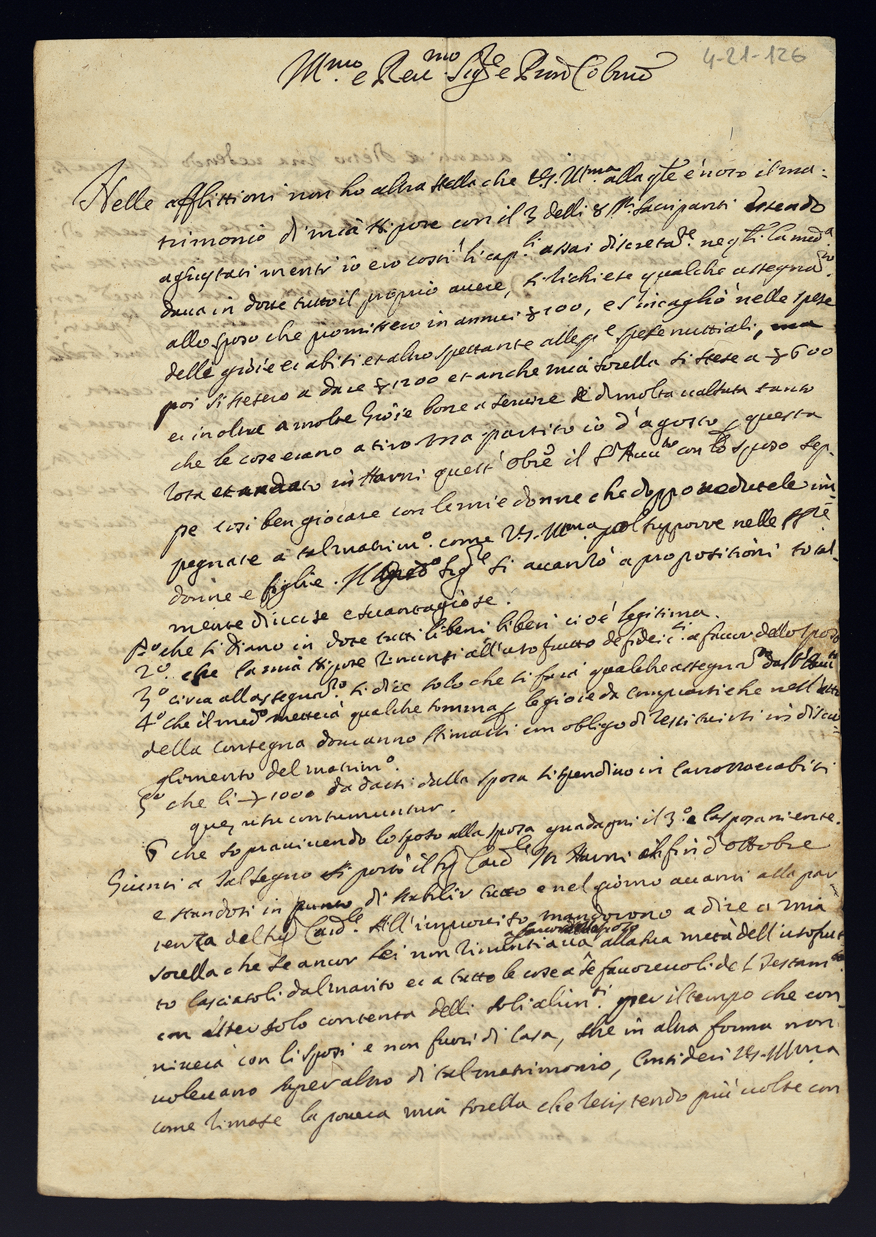 4-21-126
Ill.mo e Reu.mo Sig.re e Pron Colmo
Nelle afflittioni non ho altra stella che V.S. Ill.ma alla q.le è noto il ma-
trimonio di mia Nipote con il 3 delli Sacripanti essendo
agiustati mentr'io ero costì li cap.li assai discretam.te la med.a
daua in dote tutto il proprio auere, si richiese qualche assegnam.to
allo sposo che promissero in annui 100, e s'incagliò nelle spese
delle gioie et abiti et altro spettante alle gi e spese nuttiali,
poi si stesero a dare 1200 et anche mia sorella si stese a 600
et inoltre a molte Gioie bone a seruire di molta ualuta tanto
che le cose erano a tiro ma partito io d'agosto p questa
uolta in Narni quest' Obre il con lo sposo sep-
pe così ben giocare con le mie donne che doppo uedutele im-
pegnate a tal matrim.o come V.S. Ill.ma pol supporre nelle
donne e figlie. Sig.re si auanzò a propositioni total-
mente diuerse e suantagiose.
P.o che si diano in dote tutti li beni liberi cioè legitima.
2.o che la mia Nipote renunzi all'usofrutto de fideic.i a fauor dello sposo
3.o circa all'assegnam.to si dice solo che si farà qualche assegnam.to
4.o che il med.o metterà qualche somma p le gioie da comprarsi che nell'atto
della consegna douranno stimarsi con obligo di restituirsi in discio-
glimento del matrim.o
5.o che li 1000 da darsi dalla sposa si spendino in carrozza et abiti
que usu consumuntur.
6 che soprauiuendo lo sposo alla sposa guadagni il 3.o e la sposa niente.
Giunti a tal segno si portò il Sig Card.le in Narni al fin d'ottobre
e standosi in punto di stabilir tutto e nel giorno auanti alla par
tenza del Sig Card.le All'improuiso mandorono a dire a mia
sorella che se ancor lei non rinuntiaua a fauor dello sposo alla sua metà dell'usofrut-
to lasciatoli dal marito et a tutte le cose a se fauoreuoli del Testam.to
con esser solo contenta delli soli alim.ti per il tempo che con-
uiuerà con li sposi e non fuori di casa, che in altra forma non
uoleuano saper altro di tal matrimonio, Consideri V.S. Ill.ma
come rimase la pouera mia sorella che resistendo più uolte con